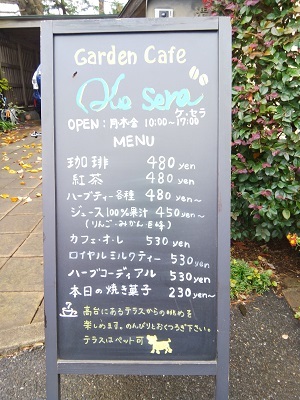 Garden Cafe
Ke Sera
ケ・セラ
OPEN：月木金 10:00～17:00
MENU
珈琲 480 yen
紅茶 480 yen
ハーブティー各種 480 yen～
ジュース100%果汁 450 yen～
(りんご・みかん・巨峰)
カフェ・オ・レ 530 yen
ロイヤルミルクティー 530 yen
ハーブコーディアル 530 yen
本日の焼き菓子 230 yen～
高台にあるテラスからの眺めを
楽しめます。のんびりとおくつろぎ下さい。
テラスはペット可